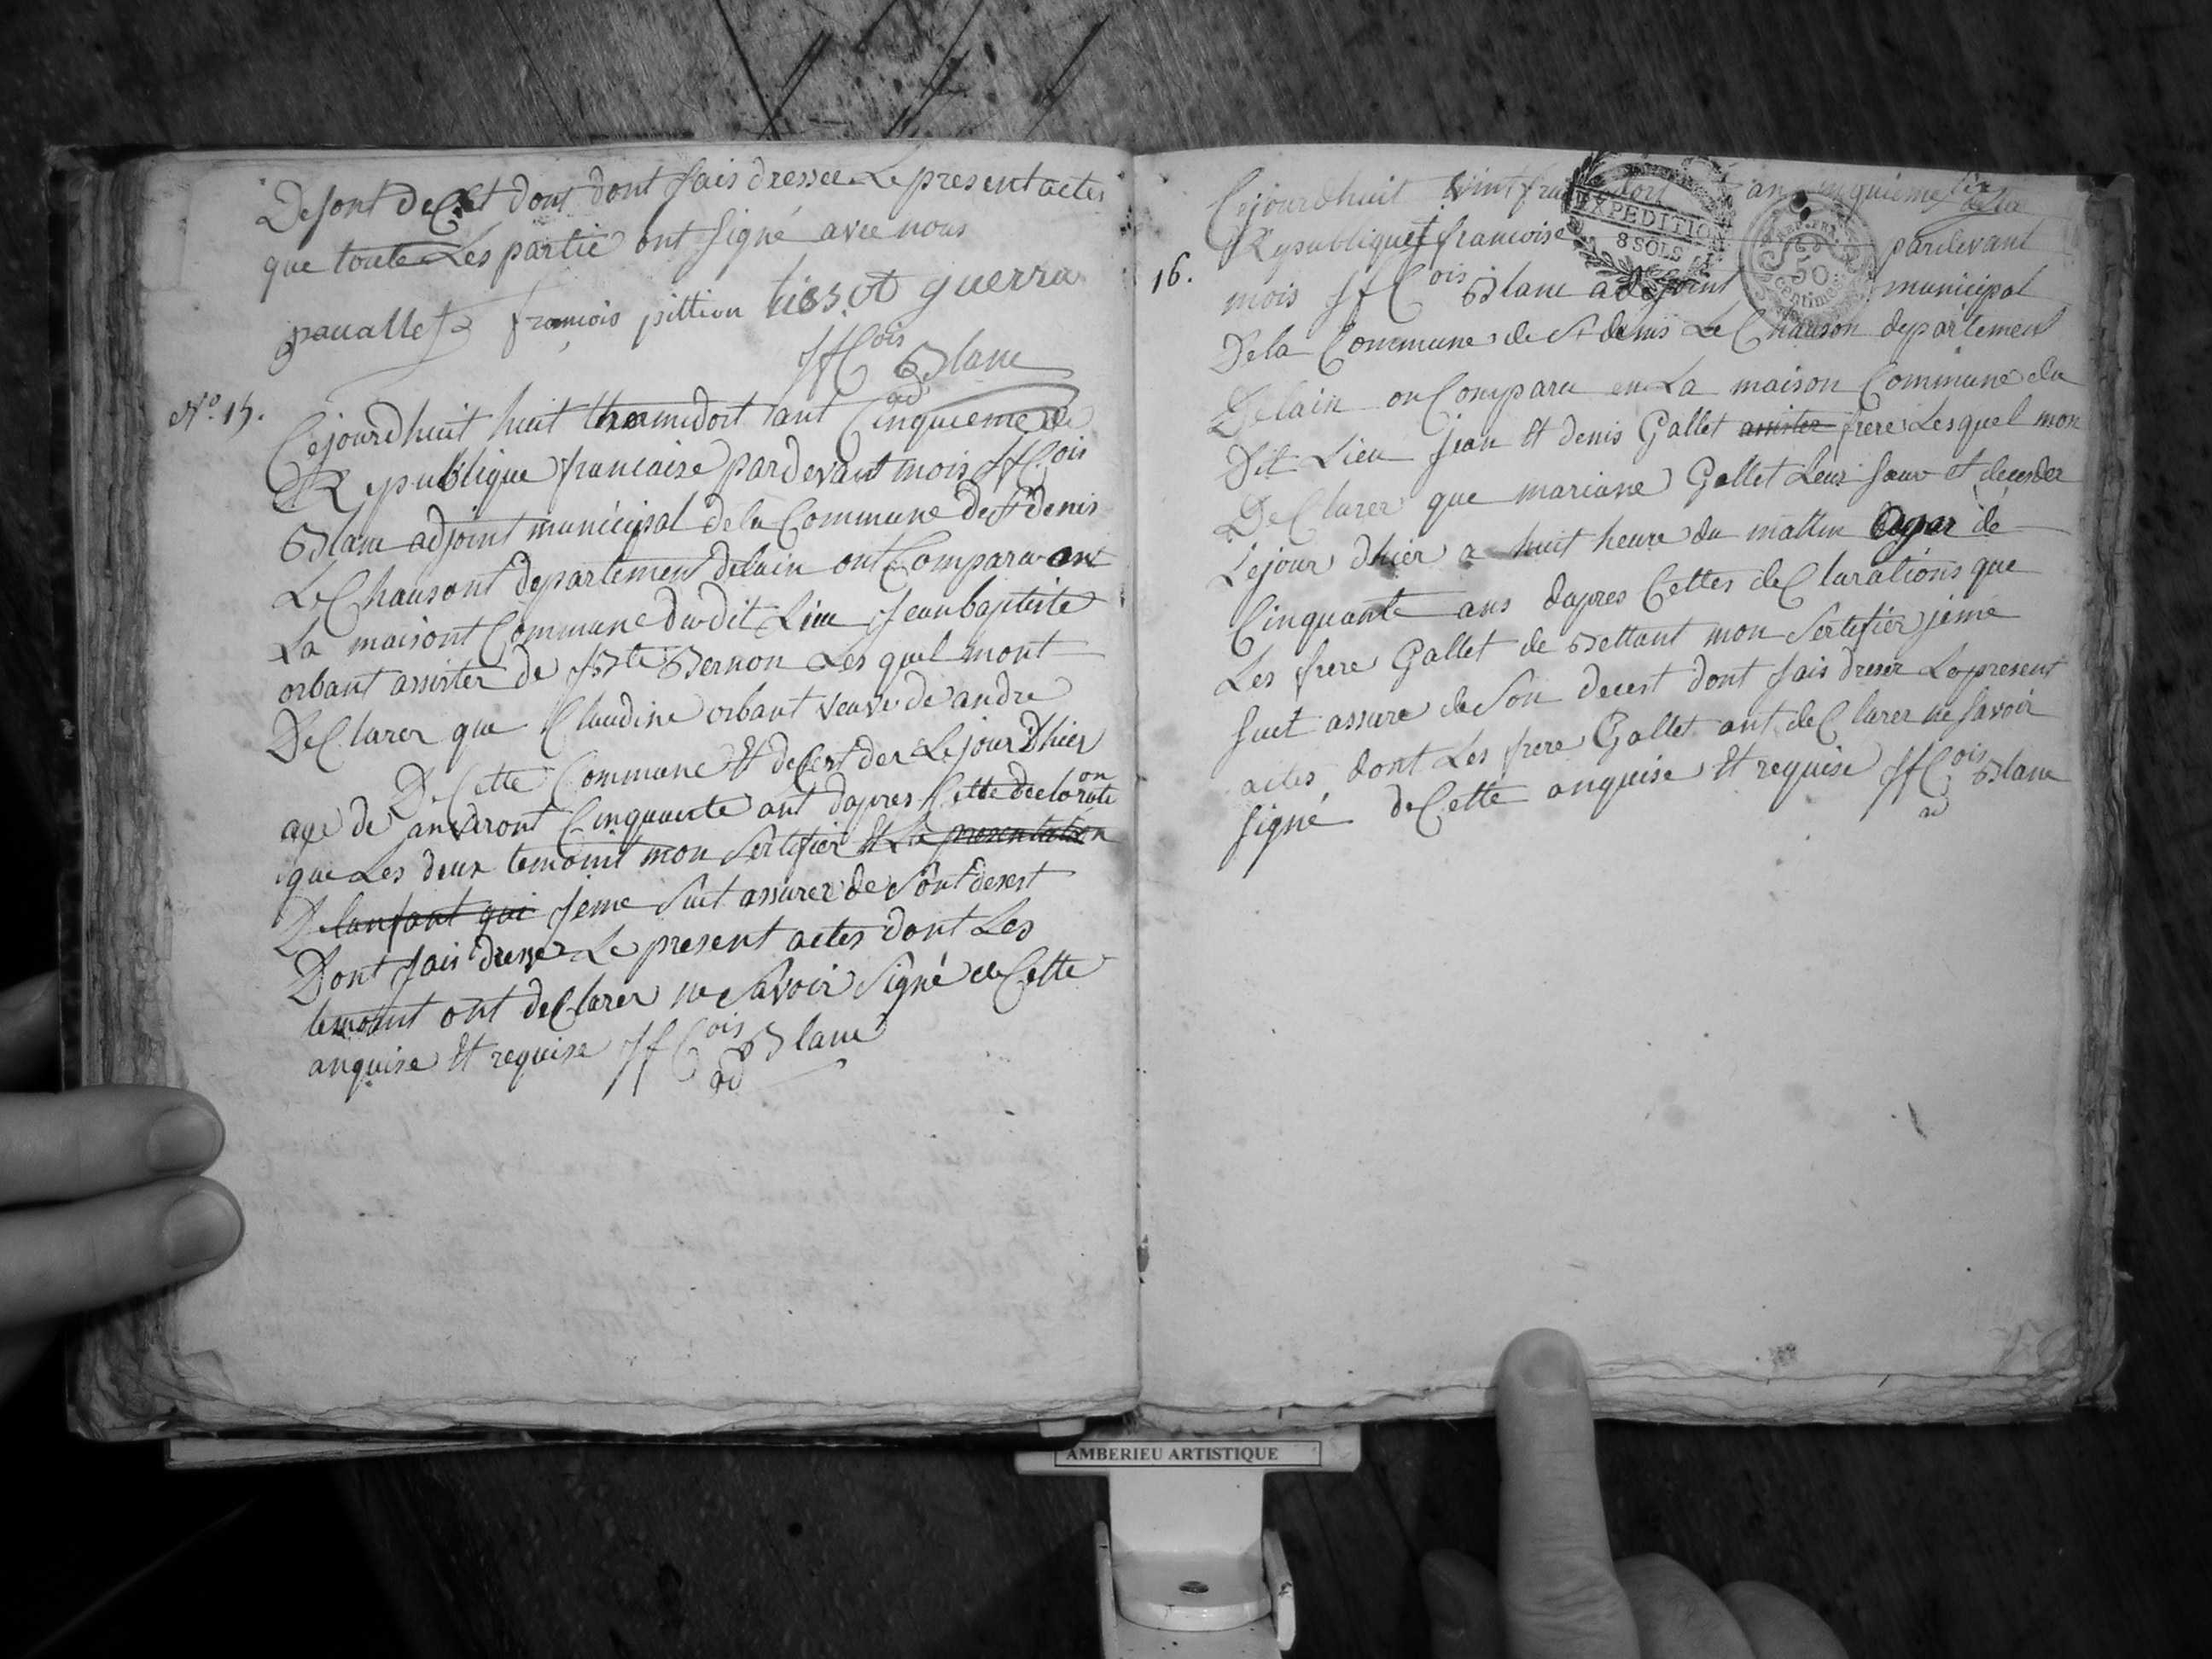 De sont decet dont dont jais dressee Le present actes
que toute Les partie ont signé avec nous
françois pittion tissot guerra
JfCois Blanc
ad
No. 15.
Cejourdhuit huit thermidort lant Cinquieme de
La Republique francaise pardevant mois JfCois
Blanc adjoint municipal de la Commune de St denis
Le Chausont departement delain ont Comparu ans
La maisont Commune dudit Lieu Jean baptiste
orbant assister de JBte Bernon Lesquel mont
DeClarer que Claudine orbant veuve de andre
De Cette Commune et decest der Le jour Dhier
age de anviront Cinquante ant dapres Cette declaration
que Les deux temoint mon Sertifier et La presentation
De lanfant qui jeme Suit assurer de Sont desest
Dont jais dresse Le present actes dont Les
temoint ont deClarer ne Savoir Signé de Cette
anquise et requise JfCois Blanc
ad
Cejourdhuit vint an Cinquieme de la
Republiquet francoise pardevant
16.
mois JfCois Blanc adjoint municipal
De la Commune de St denis Le Chauson departement
Delain on Comparu en La maison Commune du
Dit Lieu Jean et denis Gallet assister frere Lesquel mon
DeClarer que mariane Gallet Leur soeur et deceder
Le jour dhier a huit heure du mattin agar de
Cinquante ans dapres Cettes deClarations que
Les frere Gallet de Bettant mon Sertifier jeme
suit assure de Son decest dont jais dreser Le present
actes dont Les frere Gallet ont deClarer ne Savoir
signé de Cette anquise et requise JfCois Blanc
ad
EXPEDITION
8 SOLS
50
centimes
AMBERIEU ARTISTIQUE